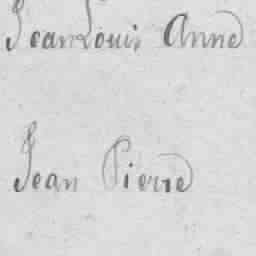 Jean Louis Anne
Jean Pierre